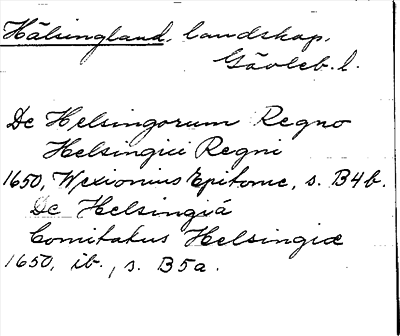 Hälsingland, landskap,
Gävleb. l.
De Helsingorum Regno
Helsingiei Regni
1650, Wexionius Epitome, s. B4b.
De Helsingiâ
Comitatus Helsingiæ
1650, ib., s. B5a.